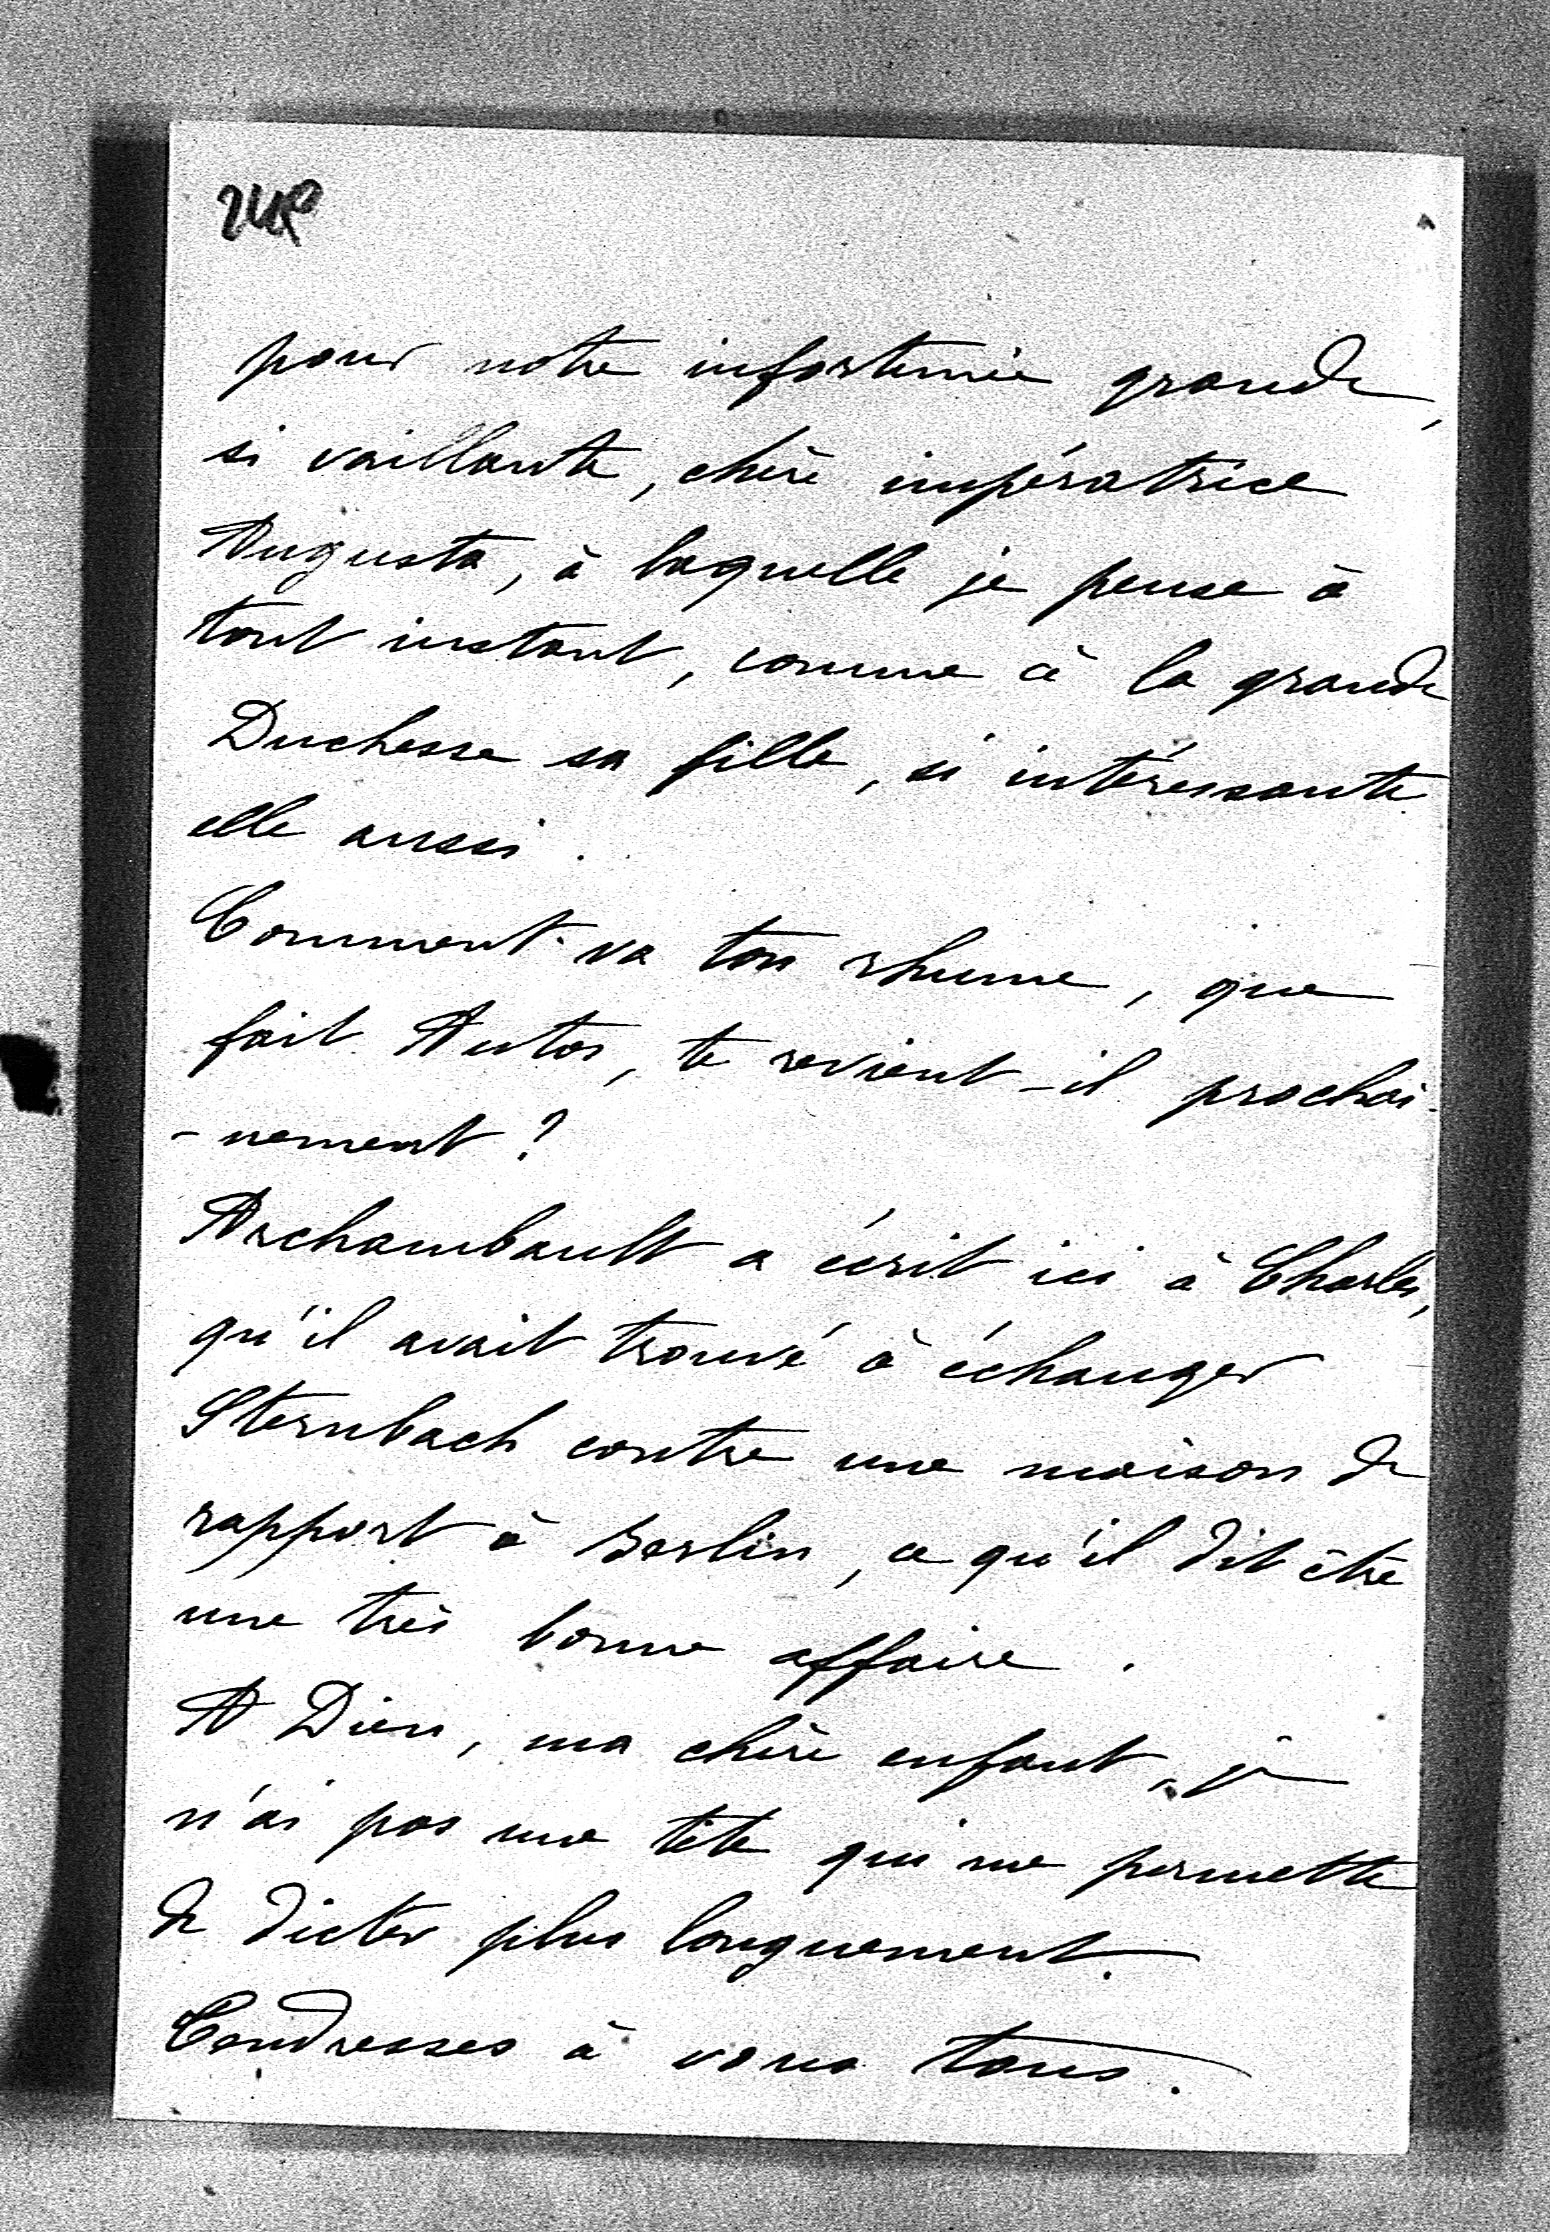 pour notre infortunée grande,
si vaillante, chère impératrice
Augusta, à laquelle je pense à
tout instant, comme à la grande
Duchesse sa fille, si intéressante
elle aussi.
Comment va ton rhume, que
fait Anton, te revient-il prochai-
-nement ?
Archambault a écrit ici à Charles,
qu'il avait trouvé à échanger
Sternbach contre une maison de
rapport à Berlin, ce qu'il dit être
une très bonne affaire.
A Dieu, ma chère enfant, je
n'ai pas une tête qui me permette
de dicter plus longuement.
Tendresses à vous tous.